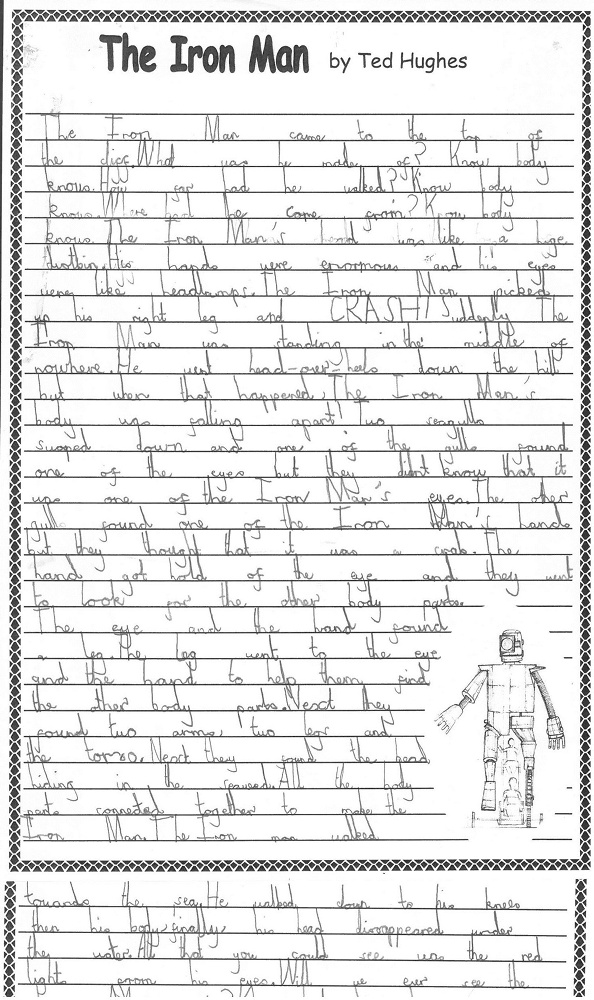 The Iron Man by Ted Hughes
The Iron Man came to the top of
the cliff. What was he made of? Know body
knows. How far had he walked? Know body
knows. Where had he come from? Know body
knows. The Iron Man's head was like a huge
dustbin. His hands were enormous and his eyes
were like headlamps. The Iron Man picked
up his right leg and CRASH! Suddenly The
Iron Man was standing in the middle of
nowhere. He went head-over-heels down the hill
but when that happened, The Iron Man's
body was falling apart! Two seagulls
swooped down and one of the gulls found
one of the eyes but they didn't know that it
was one of the Iron Man's eyes. The other
gulls found one of the Iron Man's hands
but they thought that it was a crab. The
hand got hold of the eye and they went
to look for the other body parts.
The eye and the hand found
a leg. The leg went to the eye
and the hand to help them find
the other body parts. Next they
found two arms, two legs and
the torso. Next they found the head
hiding in the seaweed. All the body
parts connected together to make the
Iron Man. The Iron man walked
towards the sea. He walked down to his knees
then his body, finally his head disappeared under
the water. All that you could see was the red
lights from his eyes. Will we ever see the